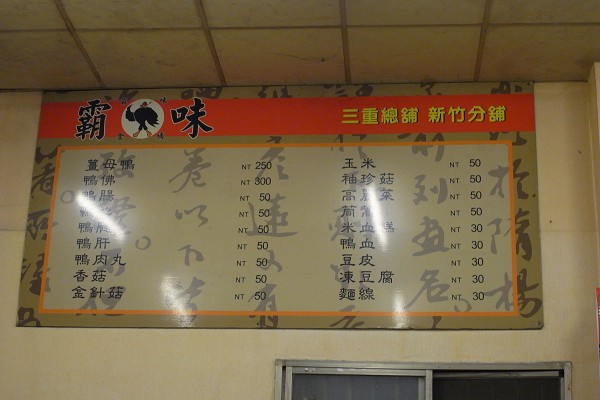 霸味 三重總舖 新竹分舖
薑母鴨 NT 250
鴨佛 NT 300
鴨腸 NT 50
鴨 NT 50
鴨腱 NT 50
鴨肝 NT 50
鴨肉丸 NT 50
香菇 NT 50
金針菇 NT 50
玉米 NT 50
袖珍菇 NT 50
高麗菜 NT 50
茼蒿 NT 50
米血糕 NT 30
鴨血 NT 30
豆皮 NT 30
凍豆腐 NT 30
麵線 NT 30